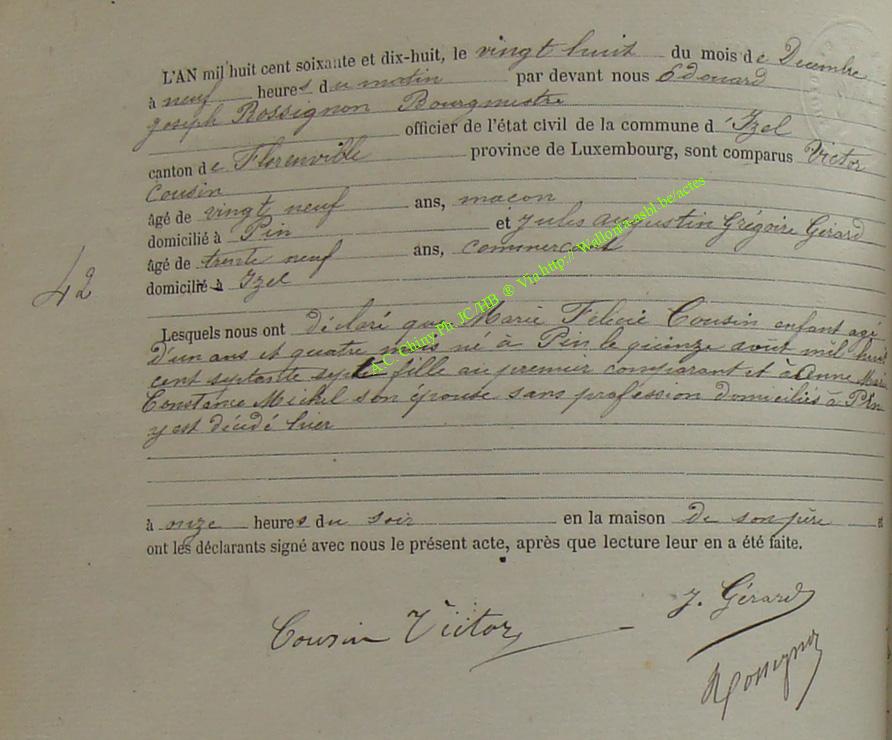 L'AN mil huit cent soixante et dix-huit, le vingt huit du mois de Decembre
à neuf heures du matin par devant nous Edouard
Joseph Rossignon Bourgmestre
officier de l'état civil de la commune d'Izel
canton de Florenville province de Luxembourg, sont comparus Victor
Cousin
âgé de vingt neuf ans, maçon
domicilié à Pin et Jules Augustin Grégoire Gérard
âgé de trente neuf ans, commercant
domicilié à Izel
42
Lesquels nous ont déclaré que Marie Félicie Cousin enfant agé
D'un ans et quatre mois né à Pin le quinze août mil huit
cent septante sept fille au premier comparant et à Anne Marie
Constance Michel son épouse sans profession domiciliés à Pin
y est décédé hier
à onze heures du soir en la maison de son père et
ont les déclarants signé avec nous le présent acte, après que lecture leur en a été faite.
Cousin Victor
J. Gérard
Rossignon
A.C. Chiny Ph. JC/HB ® Via http://Wallonia-asbl.be/actes